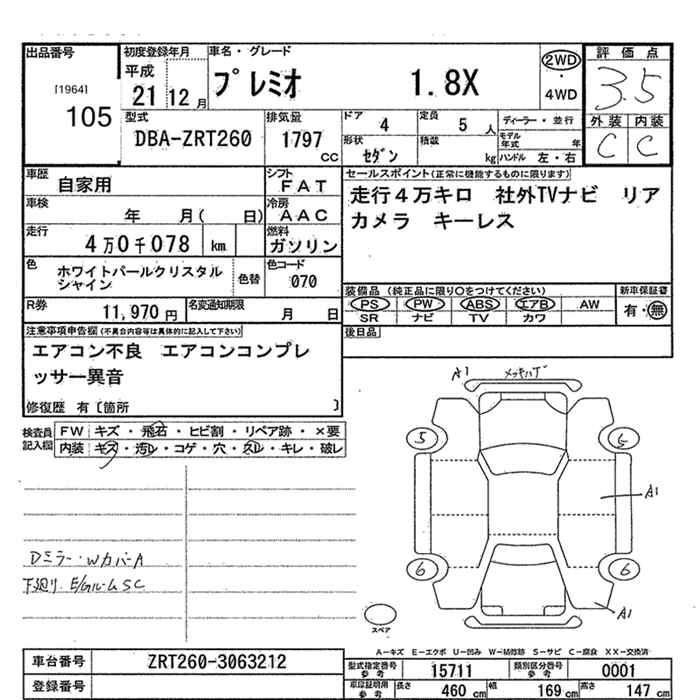 出品番号 初度登録年月 車名・グレード 評価点
[1964] 平成 プレミオ 1.8X 2WD ・ 4WD 3.5
105 21 12 月
外装 内装
型式 排気量 ドア 4 定員 5 人 ディーラー・並行 C C
DBA-ZRT260 1797 cc 形状 セダン 積載 kg モデル年式 年
ハンドル 左・右
車歴 自家用 シフト FAT セールスポイント(正常に機能するものに限ります)
車検 年 月( 日) 冷房 AAC 走行4万キロ 社外TVナビ リア
走行 4万0千078 km 燃料 ガソリン カメラ キーレス
色 ホワイトパールクリスタル 色替 色コード 070
シャイン
装備品 (純正品に限り○をつけてください) 新車保証書
R券 11,970円 名変通知期限 月 日 PS PW ABS エアB AW 有・無
SR ナビ TV カワ
注意事項申告欄(不具合内容等は具体的に記入して下さい) 後日品
エアコン不良 エアコンコンプレ
ッサー異音
修復歴 有〔箇所 〕
検査員記入欄 FW キズ・飛石・ヒビ割・リペア跡・×要
内装 キズ・汚レ・コゲ・穴・スレ・キレ・破レ
A1 メッキハゲ
5 5
A1
Dミラー・WカバーA
下廻リ E/GルームSC
6 6
A1
スペア
A-キズ E-エクボ U-凹み W-補修跡 S-サビ C-腐食 XX-交換済
車台番号 ZRT260-3063212 型式指定番号 参考 15711 類別区分番号 参考 0001
登録番号 車庫証明用 参考 長さ 460 cm 幅 169 cm 高さ 147 cm